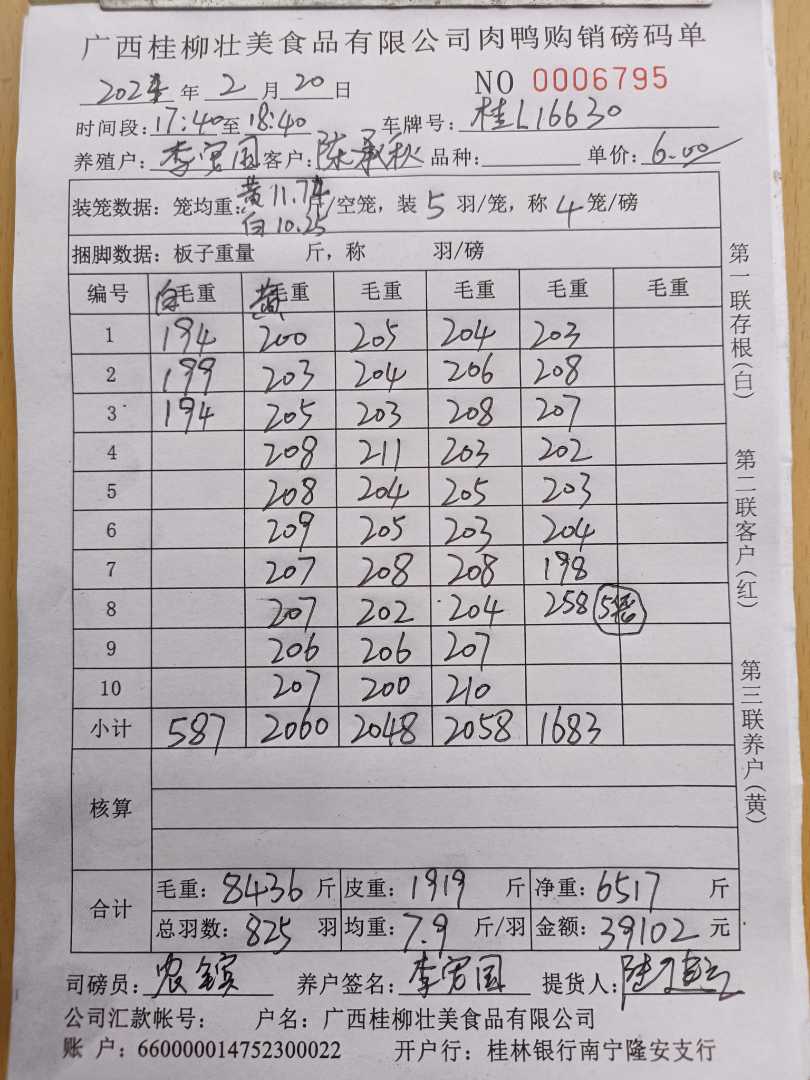 广西桂柳壮美食品有限公司肉鸭购销磅码单
2024 年 2 月 20 日 NO 0006795
时间段: 17:40 至 18:40 车牌号: 桂L16630
养殖户: 李 国 客户: 陈承秋 品种: 单价: 6.00
黄 11.74
装笼数据: 笼均重: 斤/空笼, 装 5 羽/笼, 称 4 笼/磅
白 10.25
捆脚数据: 板子重量 斤, 称 羽/磅
编号 白毛重 黄毛重 毛重 毛重 毛重 毛重
1 194 200 205 204 203
2 199 203 204 206 208
3 194 205 203 208 207
4 208 211 203 202
5 208 204 205 203
6 209 205 203 204
7 207 208 208 198
8 207 202 204 258 5
9 206 206 207
10 207 200 210
小计 587 2060 2048 2058 1683
核算
合计 毛重: 8436 斤 皮重: 1919 斤 净重: 6517 斤
总羽数: 825 羽 均重: 7.9 斤/羽 金额: 39102 元
司磅员: 农 养户签名: 李 国 提货人: 陆
公司汇款帐号: 户名: 广西桂柳壮美食品有限公司
账 户: 660000014752300022 开户行: 桂林银行南宁隆安支行
第一联存根(白) 第二联客户(红) 第三联养户(黄)